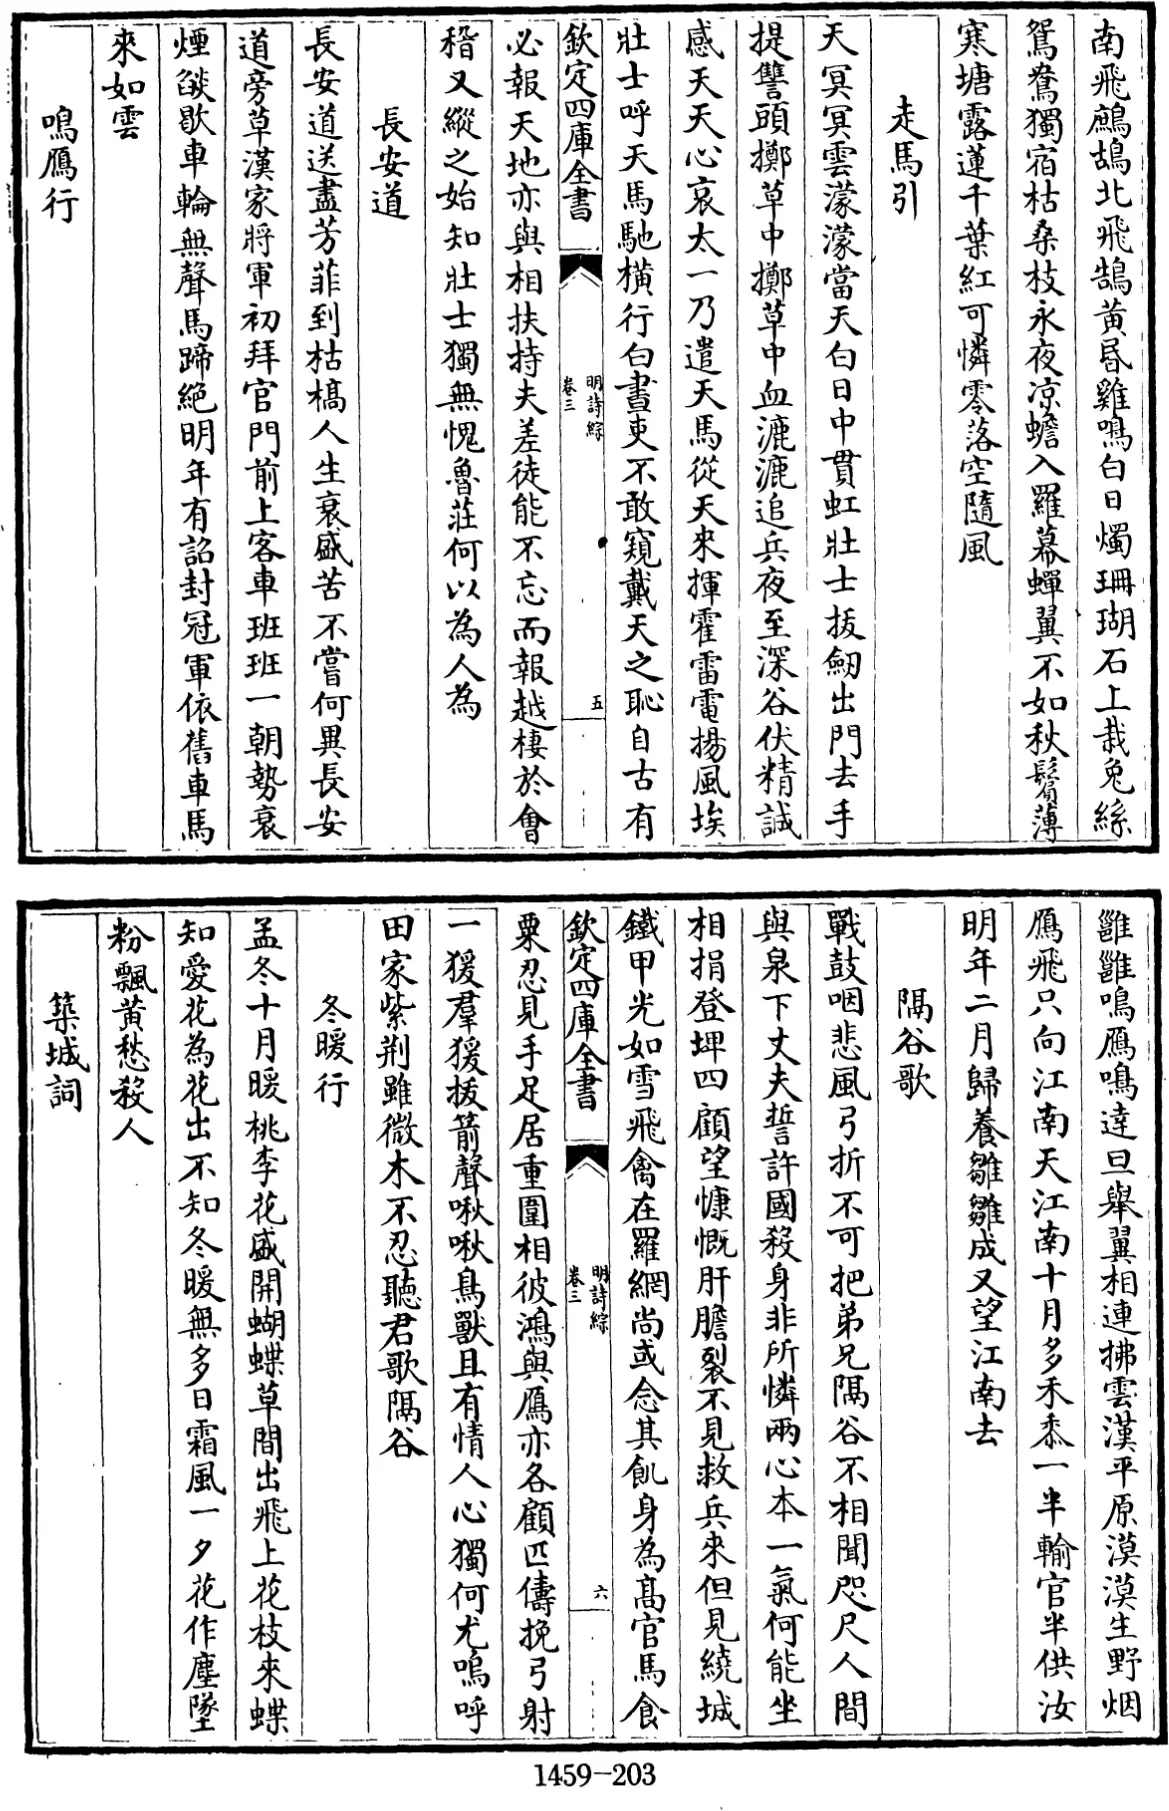 南飛鷓鴣北飛鵠黄昏雞鳴白日燭珊瑚石上栽兔絲
鴛鴦獨宿枯桑枝永夜凉蟾入羅幕蟬翼不如秋鬢薄
寒塘露蓮千葉紅可憐零落空隨風
走馬引
天冥冥雲濛濛當天白日中貫虹壯士拔劒出門去手
提讐頭擲草中擲草中血漉漉追兵夜至深谷伏精誠
感天天心哀太一乃遣天馬從天來揮霍雷電揚風埃
壯士呼天馬馳横行白晝吏不敢窺戴天之恥自古有
欽定四庫全書
明詩綜
卷三
五
必報天地亦與相扶持夫差徒能不忘而報越棲於會
稽又縱之始知壯士獨無愧魯莊何以為人為
長安道
長安道送盡芳菲到枯槁人生衰盛苦不嘗何異長安
道旁草漢家將軍初拜官門前上客車班班一朝勢衰
煙燄歇車輪無聲馬蹄絶明年有詔封冠軍依舊車馬
來如雲
鳴鴈行
雝雝鳴鴈鳴逹旦舉翼相連拂雲漢平原漠漠生野烟
鴈飛只向江南天江南十月多禾黍一半輸官半供汝
明年二月歸養雛雛成又望江南去
隔谷歌
戰鼓咽悲風弓折不可把弟兄隔谷不相聞咫尺人間
與泉下丈夫誓許國殺身非所憐兩心本一氣何能坐
相捐登埤四顧望慷慨肝膽裂不見救兵來但見繞城
鐵甲光如雪飛禽在羅網尚或念其飢身為髙官馬食
欽定四庫全書
明詩綜
卷三
六
粟忍見手足居重圍相彼鴻與鴈亦各顧匹儔挽弓射
一猨羣猨拔箭聲啾啾鳥獸且有情人心獨何尤嗚呼
田家紫荆雖微木不忍聽君歌隔谷
冬暖行
孟冬十月暖桃李花盛開蝴蝶草間出飛上花枝來蝶
知愛花為花出不知冬暖無多日霜風一夕花作塵墜
粉飄黄愁殺人
築城詞
1459-203